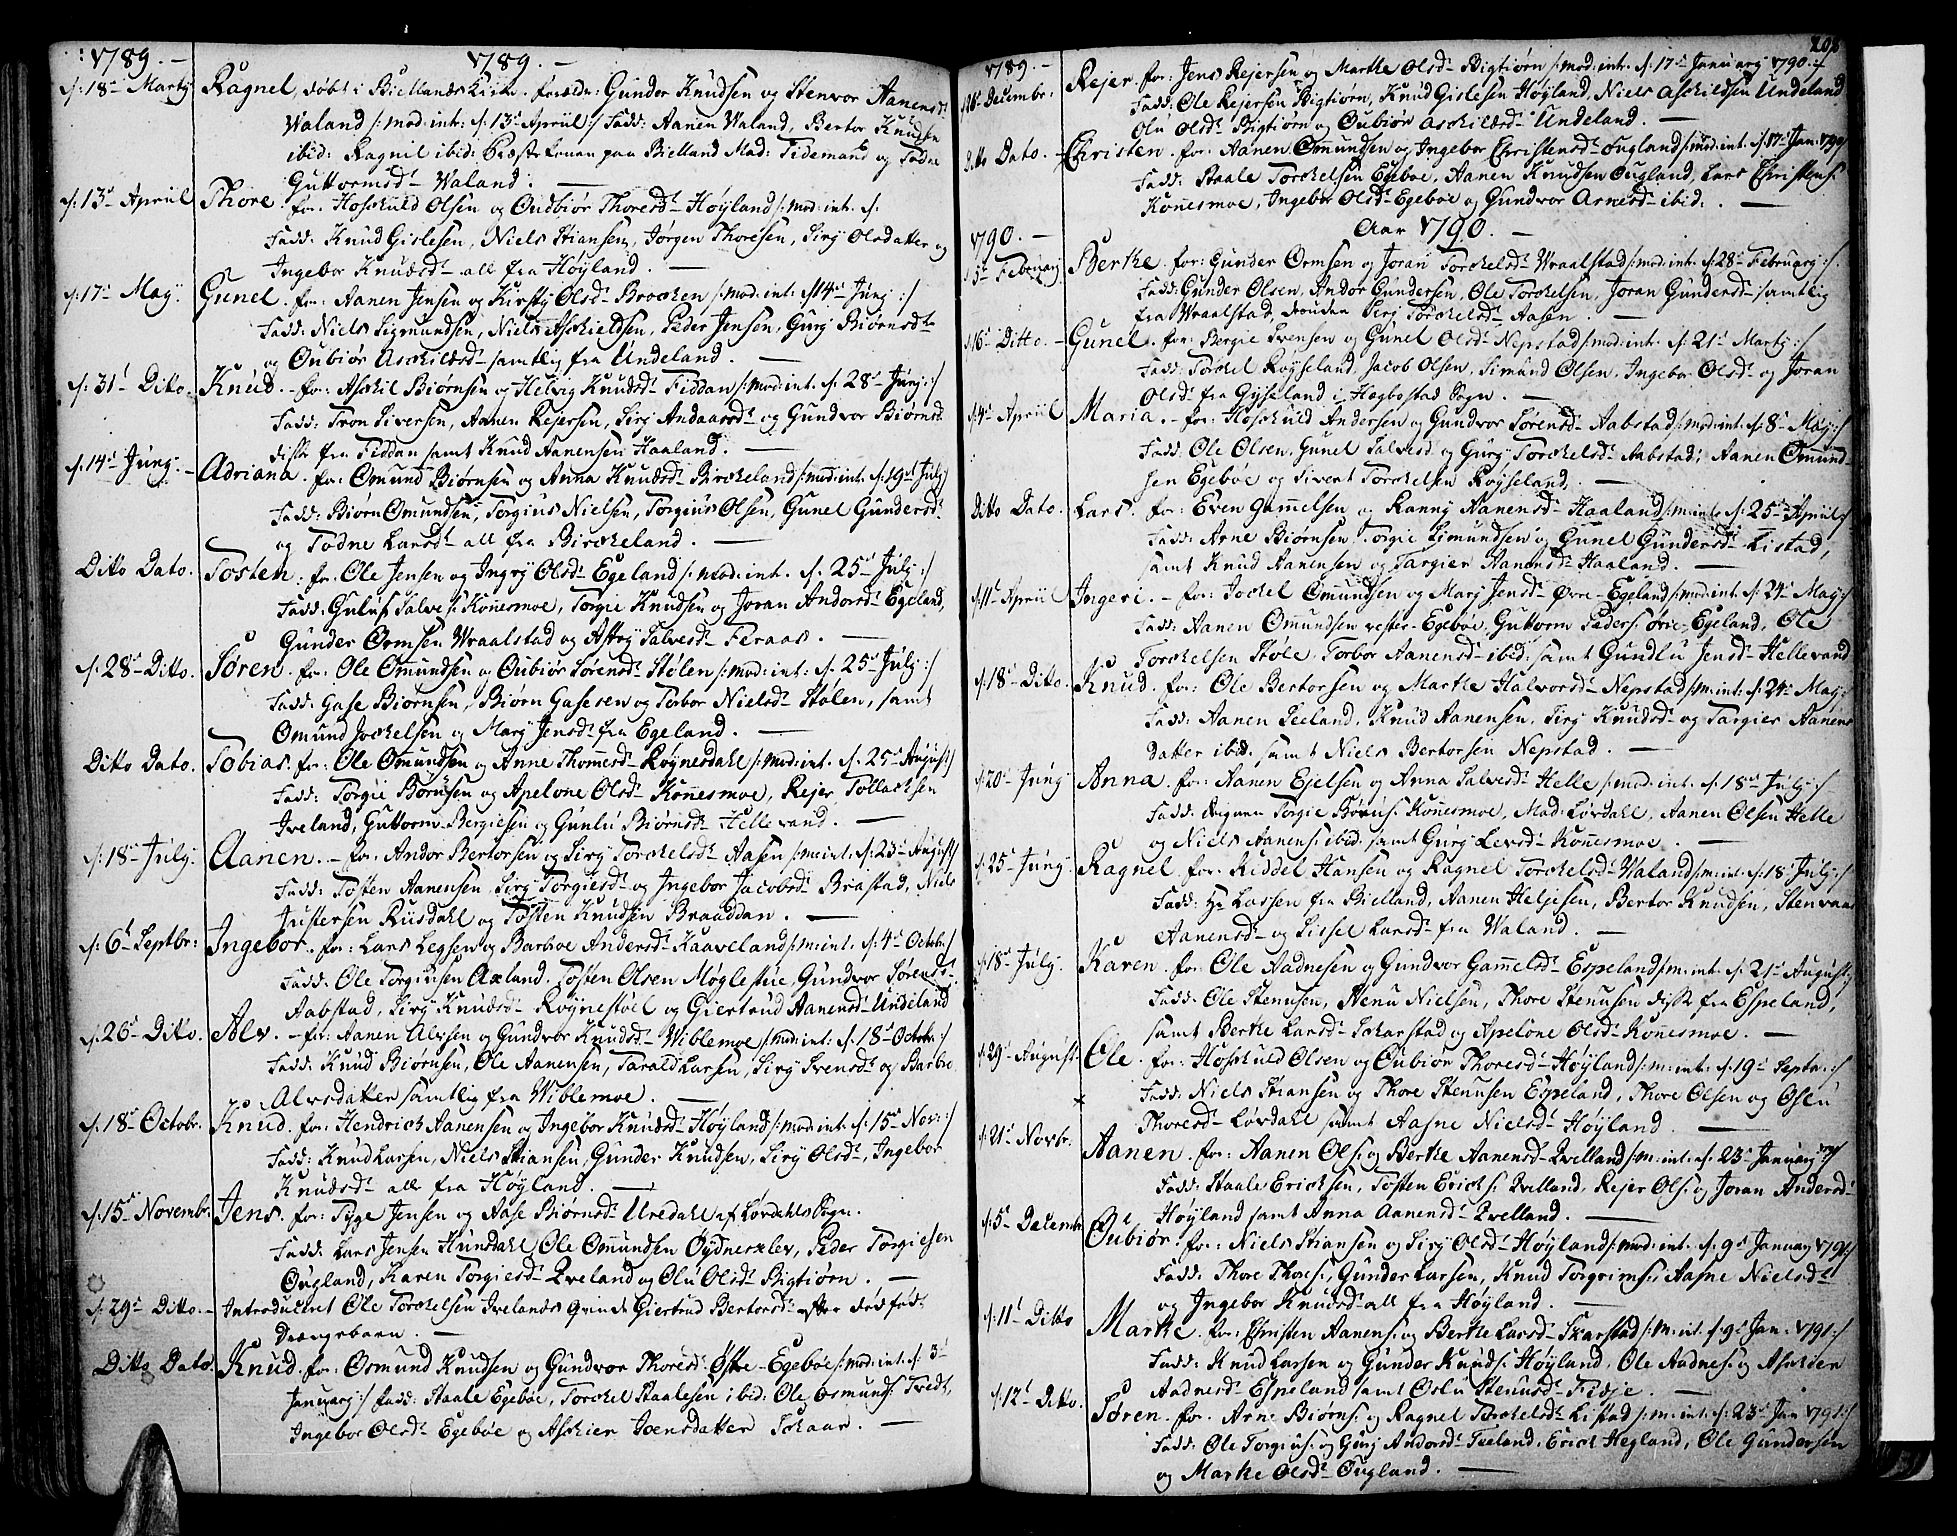 1789. —
1789. —
d: 18d Martj Ragnel, døbt i Biellands Kirke. forældr: Gunder Knudsen og Stenvor Aanensdr
Waland /: mod: int: d: 13d Apriil :/ Fadd: Aanen Waland, Bertor Knudsen
ibid: Ragnil ibid: Præste konen paa Bielland Mad: Tidemand og Todne
Guttormsdr Waland. —
d: 13d Apriil Thore for: Hoskuld Olsen og Oudbiør Thoresdr Høyland /: mod: int. d:
Fadd: Knud Gislesen, Niels Stiansen, Jørgen Thoresen, Sirj Olsdatter og
Ingebor Knudsdr all fra Høyland. —
d: 17d Maj. Gunel. for: Aanen Jensen og Kirstj Olsdr Brocken /: mod: int: d 14d Junj :/
Fadd: Niels Sigmundsen, Niels Aschildsen, Peder Jensen, Gurj Biørnsdr
og Oubiør Aschildsdr samtlig fra Undeland. —
d: 31d Ditto. Knud. for: Aschil Biørnsen og Helvig Knudsdr Fiddan /: mod: int. d: 28d Junj :/
Fadd: Tron Siversen, Aanen Rejersen, Sirj Andaasdr og Gundvor Biørnsdr
disse fra Fiddan samt Knud Aanensen Haaland. —
d: 14d Junj. Adriana. for: Omund Biørnsen og Anna Knudsdr Birckeland /: mod: int. d: 19d Julj
Fadd: Biørn Omundsen, Torgius Nielsen, Torgius Olsen, Gunel Gundersdr
og Todne Larsdr all fra Birckeland. —
Ditto Dato. Tosten. for: Ole Jensen og Ingrj Olsdr Egeland /: mod: int. d: 25d Julj :/
Fadd: Guluf Salves: Konnesmoe, Torgie Knudsen og Joran Andorsdr Egeland,
Gunder Ormsen Wraalstad og Astrj Salvesdr Feraas. —
d: 28d Ditto. Søren. for: Ole Omundsen og Oubiør Sørensdr Stølen /: mod: int: d: 25d Julj :/
Fadd: Gase Biørnsen, Biørn Gasesen og Torbor Nielsdr Stølen, samt
Omund Jockelsen og Marj Jensdr fra Egeland. —
Ditto Dato. Tobias. for: Ole Omundsen og Anne Thomesdr Røynesdahl /: mod: int. d: 25d August :/
Fadd: Torgie Børusen og Apelone Olsdr Konnesmoe, Rejer Tollacksen
Iveland, Guttorm Bergiesen og Gunlu Biørnsdr Hellevand. —
d: 18d Julj. Aanen. for: Andor Bertorsen og Sirj Torckelsdr Aasen /: m: int: d: 23d August :/
Fadd: Tosten Aanensen, Sirj Torgiesdr og Ingebor Jacobsdr Brastad, Niels
Justersen Riisdahl og Tosten Knudsen Braaddan. —
d: 6d Septbr: Ingebor. for: Lars Legsen og Barbroe Andersdr Kaaveland /: m: int. d: 4d Octobr :/
Fadd: Ole Torgiusen Axland, Tosten Olsen Møglestue, Gundvor Sørensdr
Aabstad, Sirj Knudsdr Røynestøel og Giertrud Aanensdr Undeland
d: 26d Ditto. Alv. for: Aanen Alvsen og Gundvor Knudsdr Wiblemoe /: mod: int: d. 18d Octobr :/
Fadd: Knud Biørnsen, Ole Aanensen, Tarald Larsen, Sirj Svensdr og Barbro
Alvsdatter samtlig fra Wiblemoe. —
d: 18d Octobr. Knud. for: Hendrich Aanensen og Ingebor Knudsdr Høyland /: mod: int d: 15d Nov: :/
Fadd: Knud Larsen, Niels Stiansen, Gunder Knudsen, Sirj Olsdr, Ingebor
Knudsdr all fra Høyland. —
d: 15d Novembr. Jens. for: Tyge Jensen og Aase Biørnsdr Uredahl af Lørdahls Sogn.
Fadd: Lars Jensen Hunsdahl, Ole Omundsen Øydnesklev, Peder Torgiesen
Ougland, Karen Torgiesdr Qveland og Olu Olsdr Bigtiørn. —
d: 29d Ditto. Introduceret Ole Torckelsen Ivelands Qvinde Giertrud Bertorsdr efter dødfødt
Drængebarn. —
Ditto Dato. Knud. for: Osmund Knudsen og Gundvor Thoresdr Østre-Egeboe /: mod: int. d: 3d
Januarj :/ Fadd: Staale Egeboe, Torckel Staalesen ibid: Ole Osmunds: Tvedt,
Ingebor Olsdr Egeboe og Aschier Joensdatter Schaar. —
208
1789. —
d 26d Decembr: Rejer. for: Jens Rejersen og Marthe Olsdr Bigtiørn /: mod: int. d: 17d Januarj 1790 :/
Fadd: Ole Rejersen Bigtiørn, Knud Gislesen Høyland, Niels Aschildsen Undeland
Olu Olsdr Bigtiørn og Oubiør Aschildsdr Undeland. —
Ditto Dato. Christen. for: Aanen Omundsen og Ingebor Christensdr Ougland /: mod: int. d: 17d Jan: 1790
Fadd: Staale Torckelsen Egeboe, Aanen Knudsen Ougland, Lars Christens:
Konnesmoe, Ingebor Olsdr Egeboe og Gundvor Arnesdr ibid. —
1790. — Aar 1790. —
d 5d Februarj Berthe. for: Gunder Ormsen og Joran Torckelsdr Wraalstad /: mod: int. d: 28d Februarj :/
Fadd: Gunder Olsen, Andor Gundersen, Ole Torckelsen, Joran Gundersdr samtlig
fra Wraalstad, desuden Sirj Torckelsdr Aasen. —
d 16d Ditto. Gunel. for: Bergie Svensen og Gunel Olsdr Nepstad /: mod: int. d: 21d Martj :/
Fadd: Torckel Røyseland, Jacob Olsen, Simund Olsen, Ingebor Olsdr og Joran
Olsdr fra Gyseland i Hægbostad Sogn. —
d 4d Apriil Maria. for: Hoskuld Andersen og Gundvor Sørensdr Aabstad /: mod: int. d: 8d Maj :/
Fadd: Ole Olsen, Gunel Salvesd: og Gurj Torckelsdr Aabstad, Aanen Omund-
sen Egeboe og Sivert Torckelsen Røyseland. —
Ditto Dato. Lars. for: Even Gamelsen og Ranny Aanensdr Haaland /: m: int d: 25d Apriil :/
Fadd: Arne Biørnsen, Torgie Simundsen og Gunel Gundersdr Listad,
samt Knud Aanensen og Targier Aanensdr Haaland. —
d 11d Apriil Ingeri. for: Jockel Omundsen og Marj Jensdr Øvre-Egeland /: mod: int. d: 24d Maj :/
Fadd: Aanen Omundsen vester-Egeboe, Guttorm Peders: øvre-Egeland, Ole
Torckelsen Støle, Torbor Aanensdr ibid: samt Gundlu Jensdr Hellevand
d: 18d Ditto. Knud. for: Ole Bertorsen og Marthe Halvorsdr Nepstad /: m: int: d: 24d Maj :/
Fadd: Aanen Seeland, Knud Aanensen, Sirj Knudsdr og Targier Aanens
datter ibid. samt Niels Bertorsen Nepstad. —
d: 20d Junj Anna. for: Aanen Ejelsen og Anna Salvesdr Helle /: mod: int. d: 18d Julj :/
Fadd: Torgie Børus: Konnesmoe, Mad: Lørdahl, Aanen Olsen Helle
og Niels Aanens: ibid: samt Gurj Levsdr Konnesmoe. —
d: 25d Junj Ragnel. for: Riddel Hansen og Ragnel Torckelsdr Waland /: m: int. d: 18d Julj :/
Fadd: Hr Lassen fra Bielland, Aanen Heljesen, Bertor Knudsen, Stenvaar
Aanensdr og Sidsel Larsdr fra Waland. —
d: 18d Julj. Karen. for: Ole Aadnesen og Gundvor Gamelsdr Espeland /: m: int. d: 21d August :/
Fadd: Ole Stenusen, Stenu Nielsen, Thore Stenusen disse fra Espeland,
samt Berthe Larsdr Skarstad og Apelone Olsdr Konnesmoe. —
d: 29d August. Ole. for: Hoskuld Olsen og Oubiør Thoresdr Høyland /: m: int: d: 19d Septbr: :/
Fadd: Niels Stiansen og Thore Stenusen Espeland, Thore Olsen og Oslu
Thoresdr Lørdahl samt Aasne Nielsdr Høyland. —
d: 21d Novbr. Aanen. for: Aanen Ols: og Berthe Aanensdr Qvelland /: m: int: d: 23d Januarj 1791
Fadd: Staale Ericksen, Tosten Ericks: Qvelland, Rejer Ols: og Joran Andersdr
Høyland samt Anna Aanensdr Qvelland. —
d: 5d Decembr Oubiør. for: Niels Stiansen og Sirj Olsdr Høyland /: mod: int. d: 9d Januarj 1791 :/
Fadd: Thore Thores:, Gunder Larsen, Knud Torgrims:, Aasne Nielsdr
og Ingebor Knudsdr all fra Høyland. —
d: 11d Ditto Marthe. for: Christen Aanens: og Berthe Larsdr Skarstad /: m: int. d: 9d Jan: 1791 :/
Fadd: Knud Larsen og Gunder Knuds: Høyland, Ole Aadnes: og Aschier
Aadnesdr Espeland samt Oslu Stenusdr Fidje. —
d: 12d Ditto. Søren. for: Arne Biørns: og Ragnel Torckelsdr Listad /: m: int: d: 23d Jan 1791 :/
Fadd: Ole Torgius: og Gunj Andorsdr Teeland, Erich Hegland, Ole Gundersen
og Marthe Olsdr Ougland. —